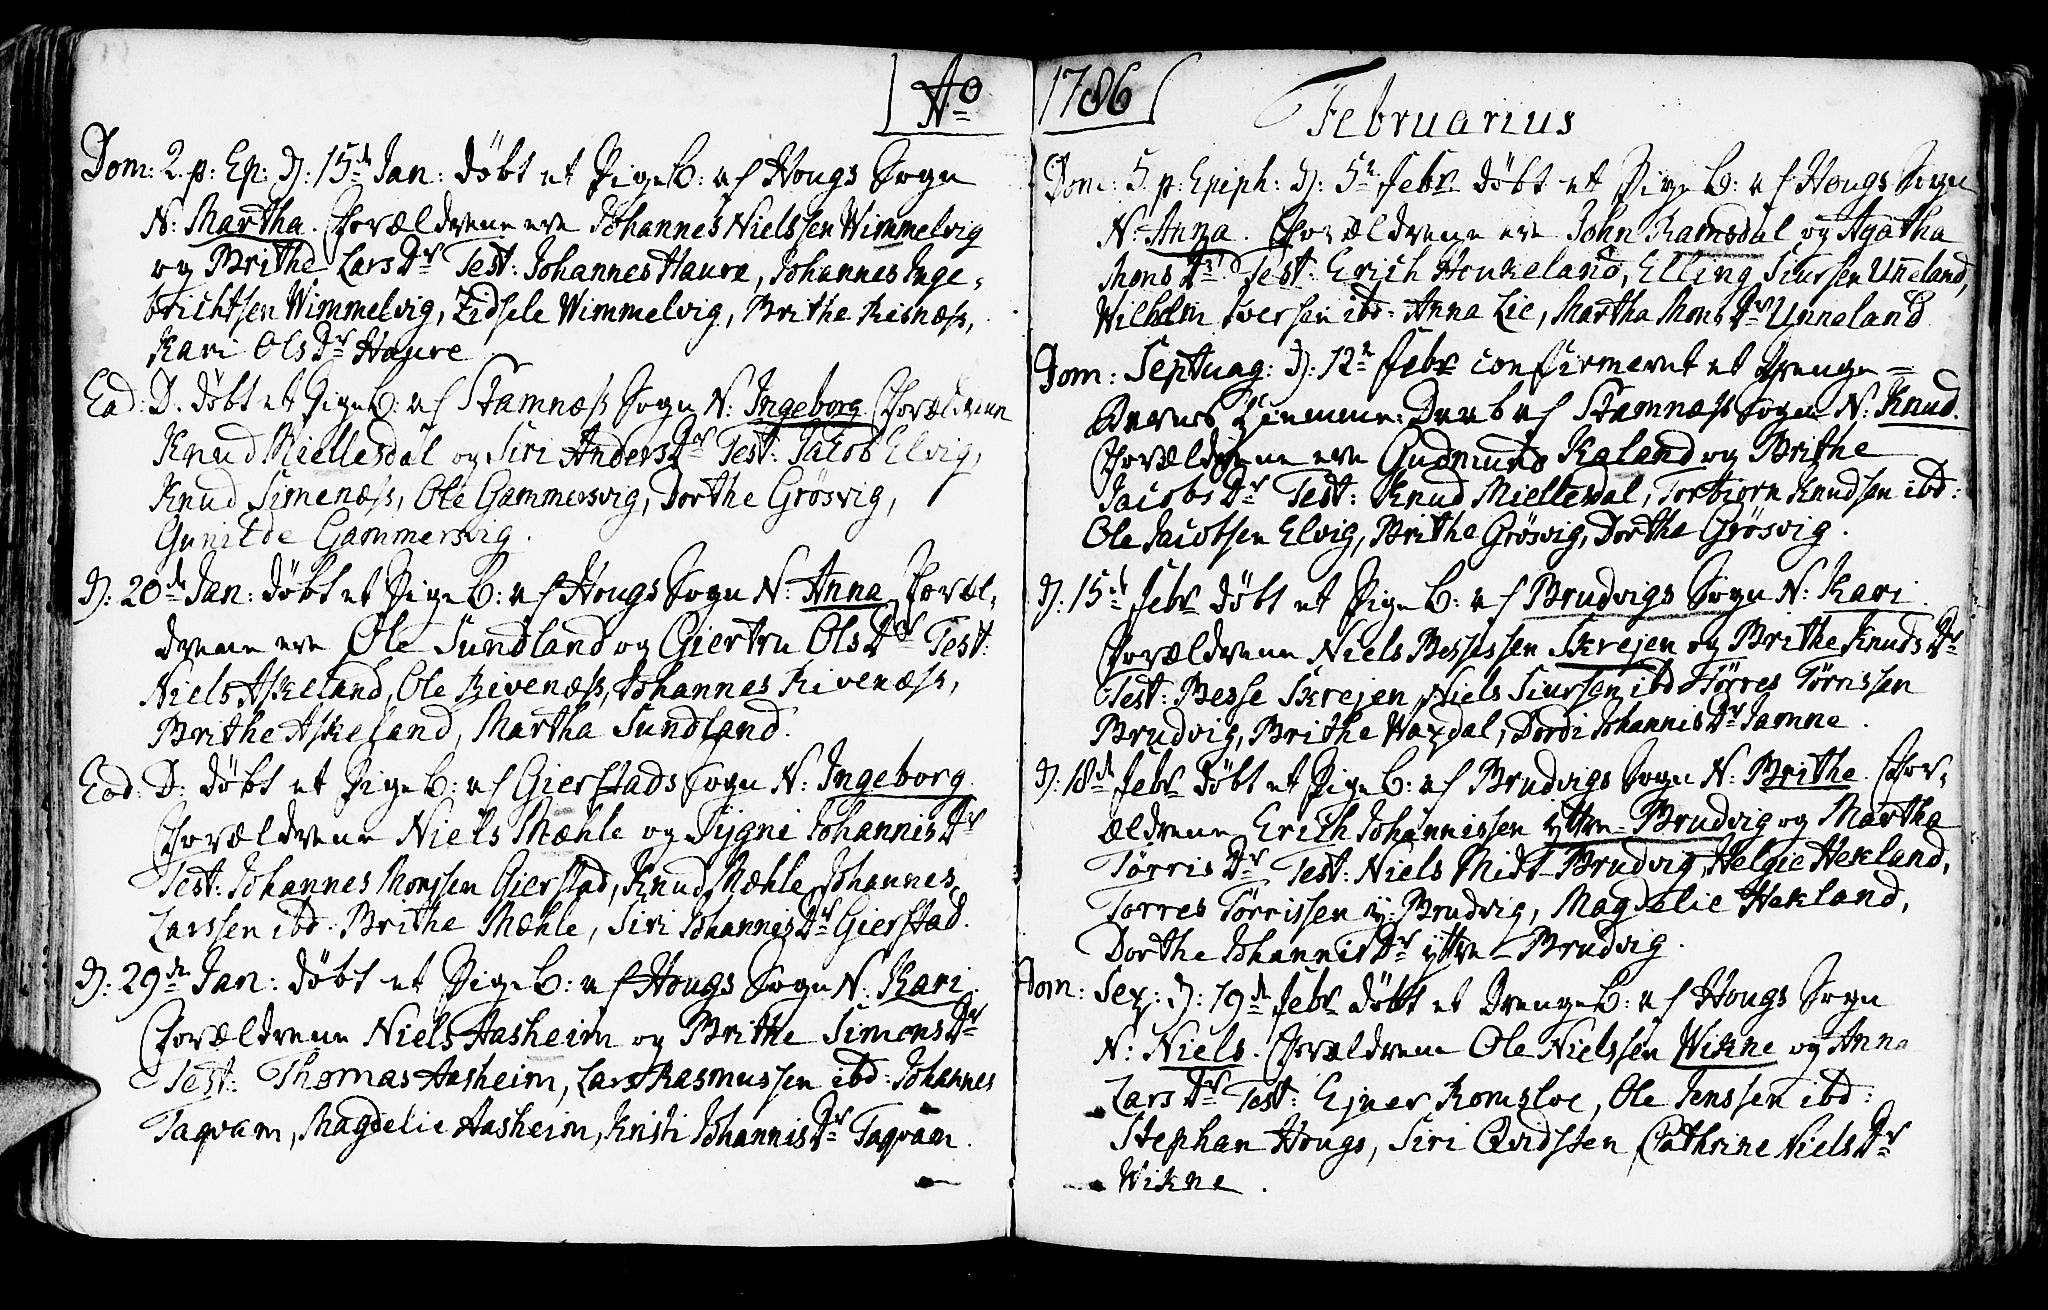 Ao
Dom: 2. p: Ep: D: 15de Jan: døbt et PigeB: af Hougs Sogn
N: Martha. Forældrene ere Johannes Nielssen Wimmelvig
og Brithe LarsDr Test: Johannes Haure, Johannes Inge-
brichtsen Wimmelvig, Zidsele Wimmelvig, Brithe Risnæss,
Kari OlsDr Haure
Ead: D. døbt et PigeB: af Stamnæss Sogn N: Ingeborg Forældrene
Knud Miellesdal og Siri AndersDr Test: Jacob Elvig,
Knud Simenæss, Ole Gammersvig, Dorthe Grøsvig,
Gunilde Gammersvig.
D: 20de Jan: døbt et PigeB: af Hougs Sogn N: Anna Foræl-
drene ere Ole Sundland og Giertru OlsDr Test:
Niels Askeland, Ole Rivenæss, Johannes Rivenæss,
Brithe Askeland, Martha Sundland.
Ead: D: døbt et PigeB: af Gierstads Sogn N: Ingeborg
Forældrene Niels Mæhle og Sygni JohannisDr
Test: Johannes Monssen Gierstad, Knud Mæhle, Johannes
Larssen ibd: Brithe Mæhle, Siri JohannisDr Gierstad.
D: 29de Jan: døbt et PigeB: af Hougs Sogn N: Kari.
Forældrene Niels Aasheim og Brithe SimonsDr
Test: Thomas Aasheim, Lars Rasmussen ibd: Johannes
Taqvam, Magdelie Aasheim, Kristi JohannisDr Taqvam.
1786
Februarius
Dom: 5. p: Epiph: D: 5te Febr døbt et PigeB: af Hougs Sogn
N: Anna. Forældrene ere John Ramsdal og Agatha
MonsDr Test: Erich Houkeland, Elling Siursen Unneland,
Wilhelm Iversen ibd: Anna Lie, Martha MonsDr Unneland
Dom: Septuag: D: 12te Febr confirmeret et Drenge=
Barns Hiemme: Daab af Stamnæss Sogn N: Knud.
Forældrene ere Gudmund Kaland og Brithe
JacobsDr Test: Knud Miellesdal, Torbiørn Knudsen ibd:
Ole Jacobsen Elvig, Brithe Grøsvig, Dorthe Grøsvig.
D: 15de Febr døbt et PigeB: af Brudvigs Sogn N: Kari.
Forældrene Niels Bessessen Skrejen og Brithe KnudsDr
Test: Besse Skrejen, Niels Siursen ibd Tørres Tørrissen
Brudvig, Brithe Vaxdal, Dordi JohannisDr Jamne.
D: 18de Febr døbt et PigeB: af Brudvigs Sogn N: Brithe. For-
ældrene Erich Johannissen yttre-Brudvig og Martha
TørrisDr Test: Niels Midt-Brudvig, Helgie Hekland,
Torres Tørrissen y: Brudvig, Magdelie Hekland,
Dorthe JohannisDr yttre-Brudvig.
Dom: Sex: D: 19de Febr døbt et DrengeB: af Hougs Sogn
N: Niels. Forældrene Ole Nielssen Wikne og Anna
LarsDr Test: Ejner Romsloe, Ole Jenssen ibd:
Stephan Hougs, Siri Qvidsten Cathrine NielsDr
Wikne.